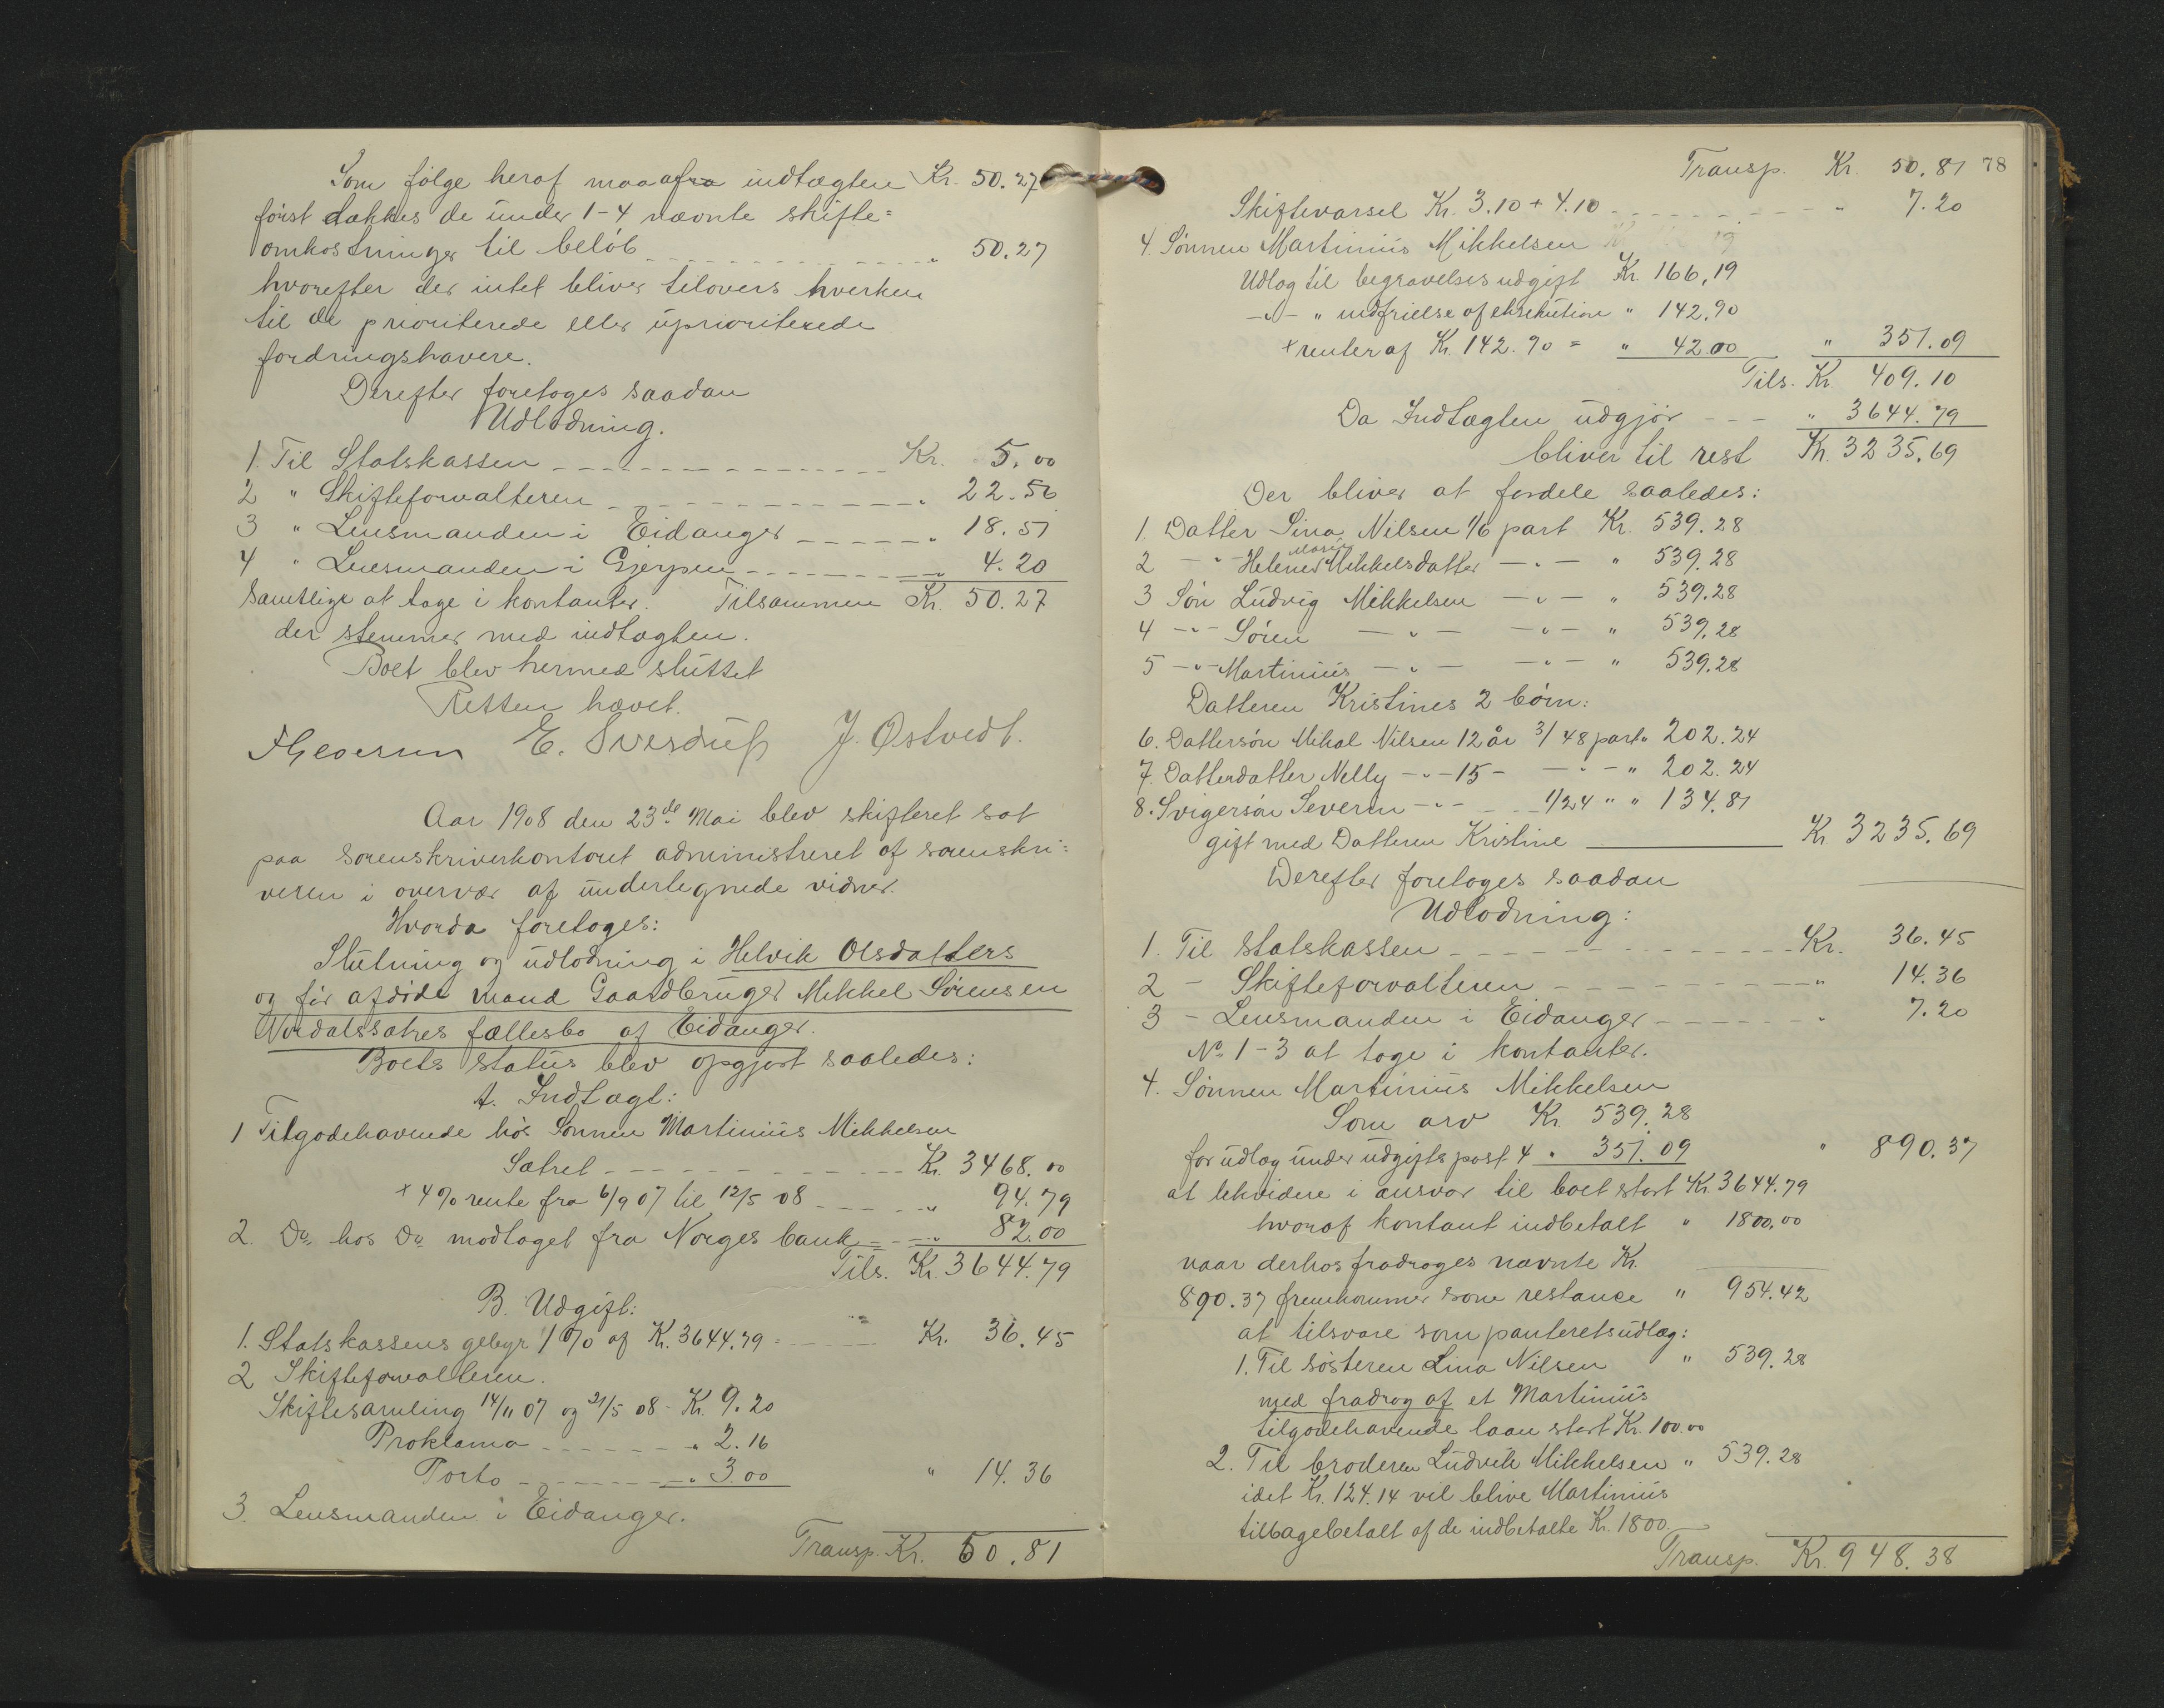 Som følge heraf maa afra indtægten Kr. 50.27
først dækkes de under 1-4 nævnte skifte=
omkostninger til beløb " 50.27
hvorefter der intet bliver tilovers hverken
til de prioriterede eller uprioriterede
fordringshavere.
Derefter foretoges saadan
Udlodning.
1. Til Statskassen Kr. 5.00
2 " Skifteforvalteren " 22.56
3 " Lensmanden i Eidanger " 18.51
4 " Lensmanden i Gjerpen " 4.20
Samtlige at tage i kontanter. Tilsammen Kr. 50.27
der stemmer med indtægten.
Boet blev hermed sluttet
Retten hævet.
E. Sverdrup J. Østvedt.
Aar 1908 den 23de Mai blev skifteret sat
paa sorenskriverkontoret administreret af sorenskri=
veren i overvær af undertegnede vidner.
Hvorda foretoges:
Slutning og udlodning i Helvik Olsdatters
og før afdøde mand Gaardbruger Mikkel Sørensen
Nordalssætres fællesbo af Eidanger.
Boets status blev opgjort saaledes:
A. Indtægt:
1 Tilgodehavende hos Sønnen Martinius Mikkelsen
Sætret Kr. 3468.00
+ 4% rente fra 6/9 07 til 12/5 08 " 94.79
2. Do hos Do modtaget fra Norges bank " 82.00
Tils. Kr. 3644.79
B. Udgift:
1. Statskassens gebyr 1% af Kr. 3644.79 = Kr. 36.45
2 Skifteforvalteren.
Skiftesamling 14/11 07 og 21/5 08 - Kr. 9.20
Proklama " 2.16
Porto " 3.00 " 14.36
3. Lensmanden i Eidanger.
Transp. Kr. 50.81
Transp. Kr. 50.81 78
Skiftevarsel Kr. 3.10 + 4.10 " 7.20
4. Sønnen Martinius Mikkelsen
Udlæg til begravelsesudgift Kr. 166.19
-"- " indfrielse af eksekution " 142.90
+ renter af Kr. 142.90 = " 42.00 " 351.09
Tils. Kr. 409.10
Da Indtægten udgjør " 3644.79
bliver til rest Kr. 3235.69
Der bliver at fordele saaledes:
1. Datter Lina Nilsen 1/6 part Kr. 539.28
2 -"- Helene Maren Mikkelsdatter -"- " 539.28
3 Søn Ludvig Mikkelsen -"- " 539.28
4 -"- Søren -"- -"- " 539.28
5 -"- Martinius -"- -"- " 539.28
Datteren Kristines 2 børn:
6. Dattersøn Mikal Nilsen 12 år 3/48 part " 202.24
7. Datterdatter Nelly -"- 15 - -"- " 202.24
8. Svigersøn Severin -"- 1/24 " " 134.81
gift med Datteren Kristine Kr 3235.69
Derefter foretoges saadan
Udlodning:
1. Til statskassen Kr. 36.45
2 - Skifteforvalteren " 14.36
3 - Lensmanden i Eidanger " 7.20
No 1-3 at tage i kontanter.
4. Sønnen Martinius Mikkelsen
Som arv Kr. 539.28
for udlæg under udgifts post 4 " 351.09 " 890.37
at lekvidere i ansvar til boet stort Kr. 3644.79
hvoraf kontant indbetalt " 1800.00
naar derhos fradrages nævnte Kr.
890.37 fremkommer som restance " 954.42
at tilsvare som panteretsudlæg:
1. Til søsteren Lina Nilsen " 539.28
med fradrag af et Martinius
tilgodehavende laan stort Kr. 100.00
2. Til broderen Ludvik Mikkelsen " 539.28
idet Kr. 124.14 vil blive Martinius
tilbagebetalt af de indbetalte Kr. 1800.
Transp. Kr. 948.38